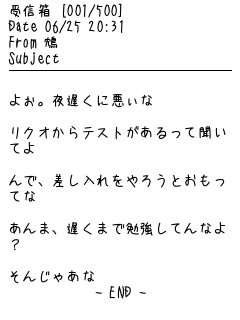 受信箱 [001/500]
Date 06/25 20:31
From 鴆
Subject
よぉ。夜遅くに悪いな
リクオからテストがあるって聞い
てよ
んで、差し入れをやろうとおもっ
てな
あんま、遅くまで勉強してんなよ
?
そんじゃあな
- END -